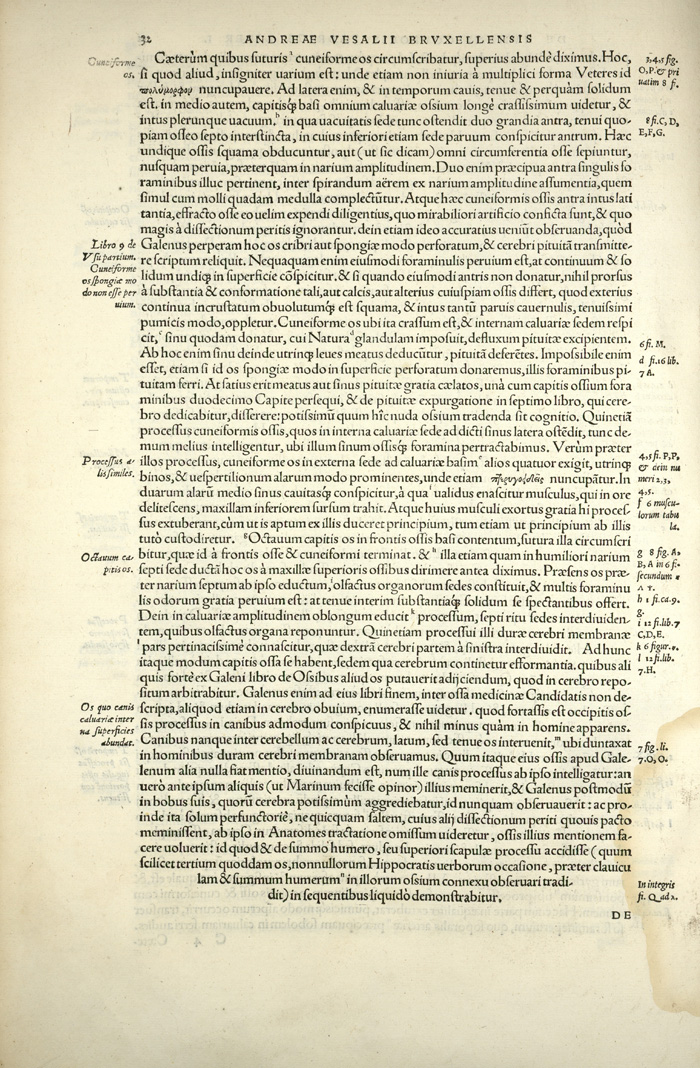 32 ANDREAE VESALII BRVXELLENSIS
Cuneiforme
os.
Cæterùm quibus suturis cuneiforme os circumscribatur, superius abundè diximus. Hoc,
si quod aliud, insigniter uarium est: unde etiam non iniuria à multiplici forma Veteres id
πολύμορφον nuncupauere. Ad latera enim, & in temporum cauis, tenue & perquàm solidum
est. in medio autem, capitisq́; basi omnium caluariæ ossium longè crassissimum uidetur, &
intus plerunque uacuum. h in qua uacuitatis sede tunc ostendit duo grandia antra, tenui quo-
piam osseo septo interstincta, in cuius inferiori etiam sede paruum conspicitur antrum. Hæc
undique ossis squama obducuntur, aut (ut sic dicam) omni circumferentia osse sepiuntur,
nusquam peruia, præterquam in narium amplitudinem. Duo enim præcipua antra singulis fo
raminibus illuc pertinent, inter spirandum aërem ex narium amplitudine assumentia, quem
simul cum molli quadam medulla complectūtur. Atque hæc cuneiformis ossis antra intus lati
tantia, effracto osse eo uelim expendi diligentius, quo mirabiliori artificio conficta sunt, & quo
magis à dissectionum peritis ignorantur. dein etiam ideo accuratius ueniūt obseruanda, quòd
Galenus perperam hoc os cribri aut spongiæ modo perforatum, & cerebri pituitā transmitte-
re scriptum reliquit. Nequaquam enim eiusmodi foraminulis peruium est, at continuum & so
lidum undiq; in superficie cōspicitur, & si quando eiusmodi antris non donatur, nihil prorsus
à substantia & conformatione tali, aut calcis, aut alterius cuiuspiam ossis differt, quod exterius
continua incrustatum obuolutumq́; est squama, & intus tantū paruis cauernulis, tenuissimi
pumicis modo, oppletur. Cuneiforme os ubi ita crassum est, & internam caluariæ sedem respi
cit, c sinu quodam donatur, cui Natura d glandulam imposuit, defluxum pituitæ excipientem.
Ab hoc enim sinu deinde utrinq; leues meatus deducūtur, pituitā deferētes. Impossibile enim
esset, etiam si id os spongiæ modo in superficie perforatum donaremus, illis foraminibus pi-
tuitam ferri. At satius erit meatus aut sinus pituitæ gratia cælatos, unà cum capitis ossium fora
minibus duodecimo Capite persequi, & de pituitæ expurgatione in septimo libro, qui cere-
bro dedicabitur, disserere: potissimū quum hîc nuda ossium tradenda sit cognitio. Quinetiā
processus cuneiformis ossis, quos in interna caluariæ sede ad dicti sinus latera ostēdit, tunc de-
mum melius intelligentur, ubi illum sinum ossisq́; foramina pertractabimus. Verùm præter
illos processus, cuneiforme os in externa sede ad caluariæ basim e alios quatuor exigit, utrinq;
binos, & uespertilionum alarum modo prominentes, unde etiam πτερυγοειδεῖς nuncupātur. In
duarum alarū medio sinus cauitasq́; conspicitur, à qua f ualidus enascitur musculus, qui in ore
delitescens, maxillam inferiorem sursum trahit. Atque huius musculi exortus gratia hi proces-
sus extuberant, cùm ut is aptum ex illis duceret principium, tum etiam ut principium ab illis
tutò custodiretur. g Octauum capitis os in frontis ossis basi contentum, sutura illa circumscri
bitur, quæ id à frontis osse & cuneiformi terminat. & h illa etiam quam in humiliori narium
septi sede ductā hoc os à maxillæ superioris ossibus dirimere antea diximus. Præsens os præ-
ter narium septum ab ipso eductum, i olfactus organorum sedes constituit, & multis foraminu
lis odorum gratia peruium est: at tenue interim substantiaq́; solidum se spectantibus offert.
Dein in caluariæ amplitudinem oblongum educit k processum, septi ritu sedes interdiuiden-
tem, quibus olfactus organa reponuntur. Quinetiam processui illi duræ cerebri membranæ
l pars pertinacissimè connascitur, quæ dextrā cerebri partem à sinistra interdiuidit. Ad hunc
itaque modum capitis ossa se habent, sedem qua cerebrum continetur efformantia. quibus ali
quis fortè ex Galeni libro de Ossibus aliud os putauerit adijciendum, quod in cerebro repo-
situm arbitrabitur. Galenus enim ad eius libri finem, inter ossa medicinæ Candidatis non de-
scripta, aliquod etiam in cerebro obuium, enumerasse uidetur. quod fortassis est occipitis os-
sis processus in canibus admodum conspicuus, & nihil minus quàm in homine apparens.
Canibus nanque inter cerebellum ac cerebrum, latum, sed tenue os interuenit, m ubi duntaxat
in hominibus duram cerebri membranam obseruamus. Quum itaque eius ossis apud Gale-
lenum alia nulla fiat mentio, diuinandum est, num ille canis processus ab ipso intelligatur: an
uerò ante ipsum aliquis (ut Marinum fecisse opinor) illius meminerit, & Galenus postmodū
in bobus suis, quorū cerebra potissimùm aggrediebatur, id nunquam obseruauerit: ac pro-
inde ita solum perfunctoriè, ne quicquam saltem, cuius alij dissectionum periti quouis pacto
meminissent, ab ipso in Anatomes tractatione omissum uideretur, ossis illius mentionem fa-
cere uoluerit: id quod & de summo humero, seu superiori scapulæ processu accidisse (quum
scilicet tertium quoddam os, nonnullorum Hippocratis uerborum occasione, præter clauicu
lam & summum humerum n in illorum ossium connexu obseruari tradi-
dit) in sequentibus liquidò demonstrabitur.
DE
Libro 9 de
Vsu partium.
Cuneiforme
os spongiæ mo
do non esse per
uium.
Processus a-
lis similes.
Octauum ca-
pitis os.
Os quo canis
caluariæ inter
na superficies
abundat.
3,4,5 fig.
O, P. & pri
uatim 8 fi.
8 fi. C, D,
E, F, G.
6 fi. M.
d fi. 16 lib.
7 A.
4,5 fi. P, P,
& dein nu
meri 2,3,
4,5.
f 6 muscu-
lorum tabu
la.
g 8 fig. A,
B, A in 6 fi-
secundum
h 1 fi. ca. 9.
g.
i 12 fi. lib. 7
C, D, E.
k 6 figur.
l 12 fi. lib.
7. H.
7 fig. li.
7. O, O.
In integris
fi. Q ad x.